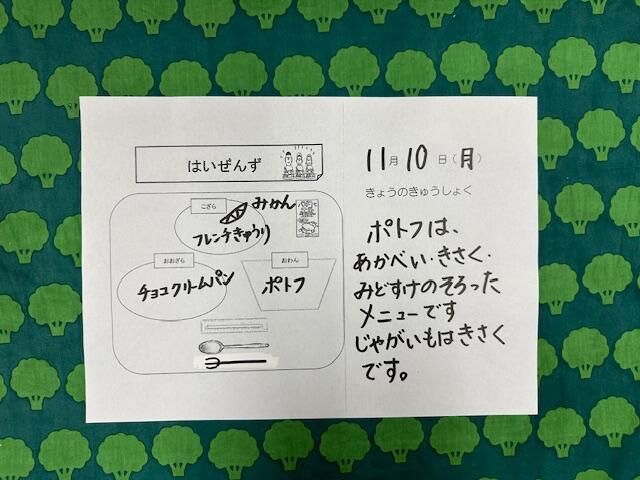 はいぜんず
こざら
みかん
フレンチきゅうり
おおざら
チョコクリームパン
おわん
ポトフ
11月10日(月)
きょうのきゅうしょく
ポトフは、
あかべい・きさく・
みどすけのそろった
メニューです
じゃがいもはきさく
です。